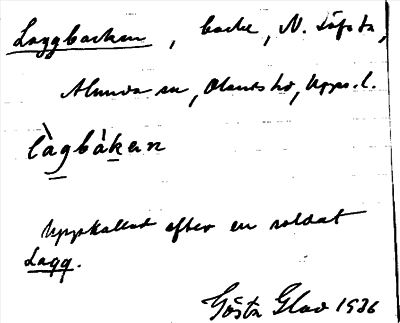 Laggbacken, backe, N. Löfsta,
Almunda sn, Olands hd, Upps. l.
làgbàken
Uppkallad efter en soldat
Lagg.
Gösta Glad 1936